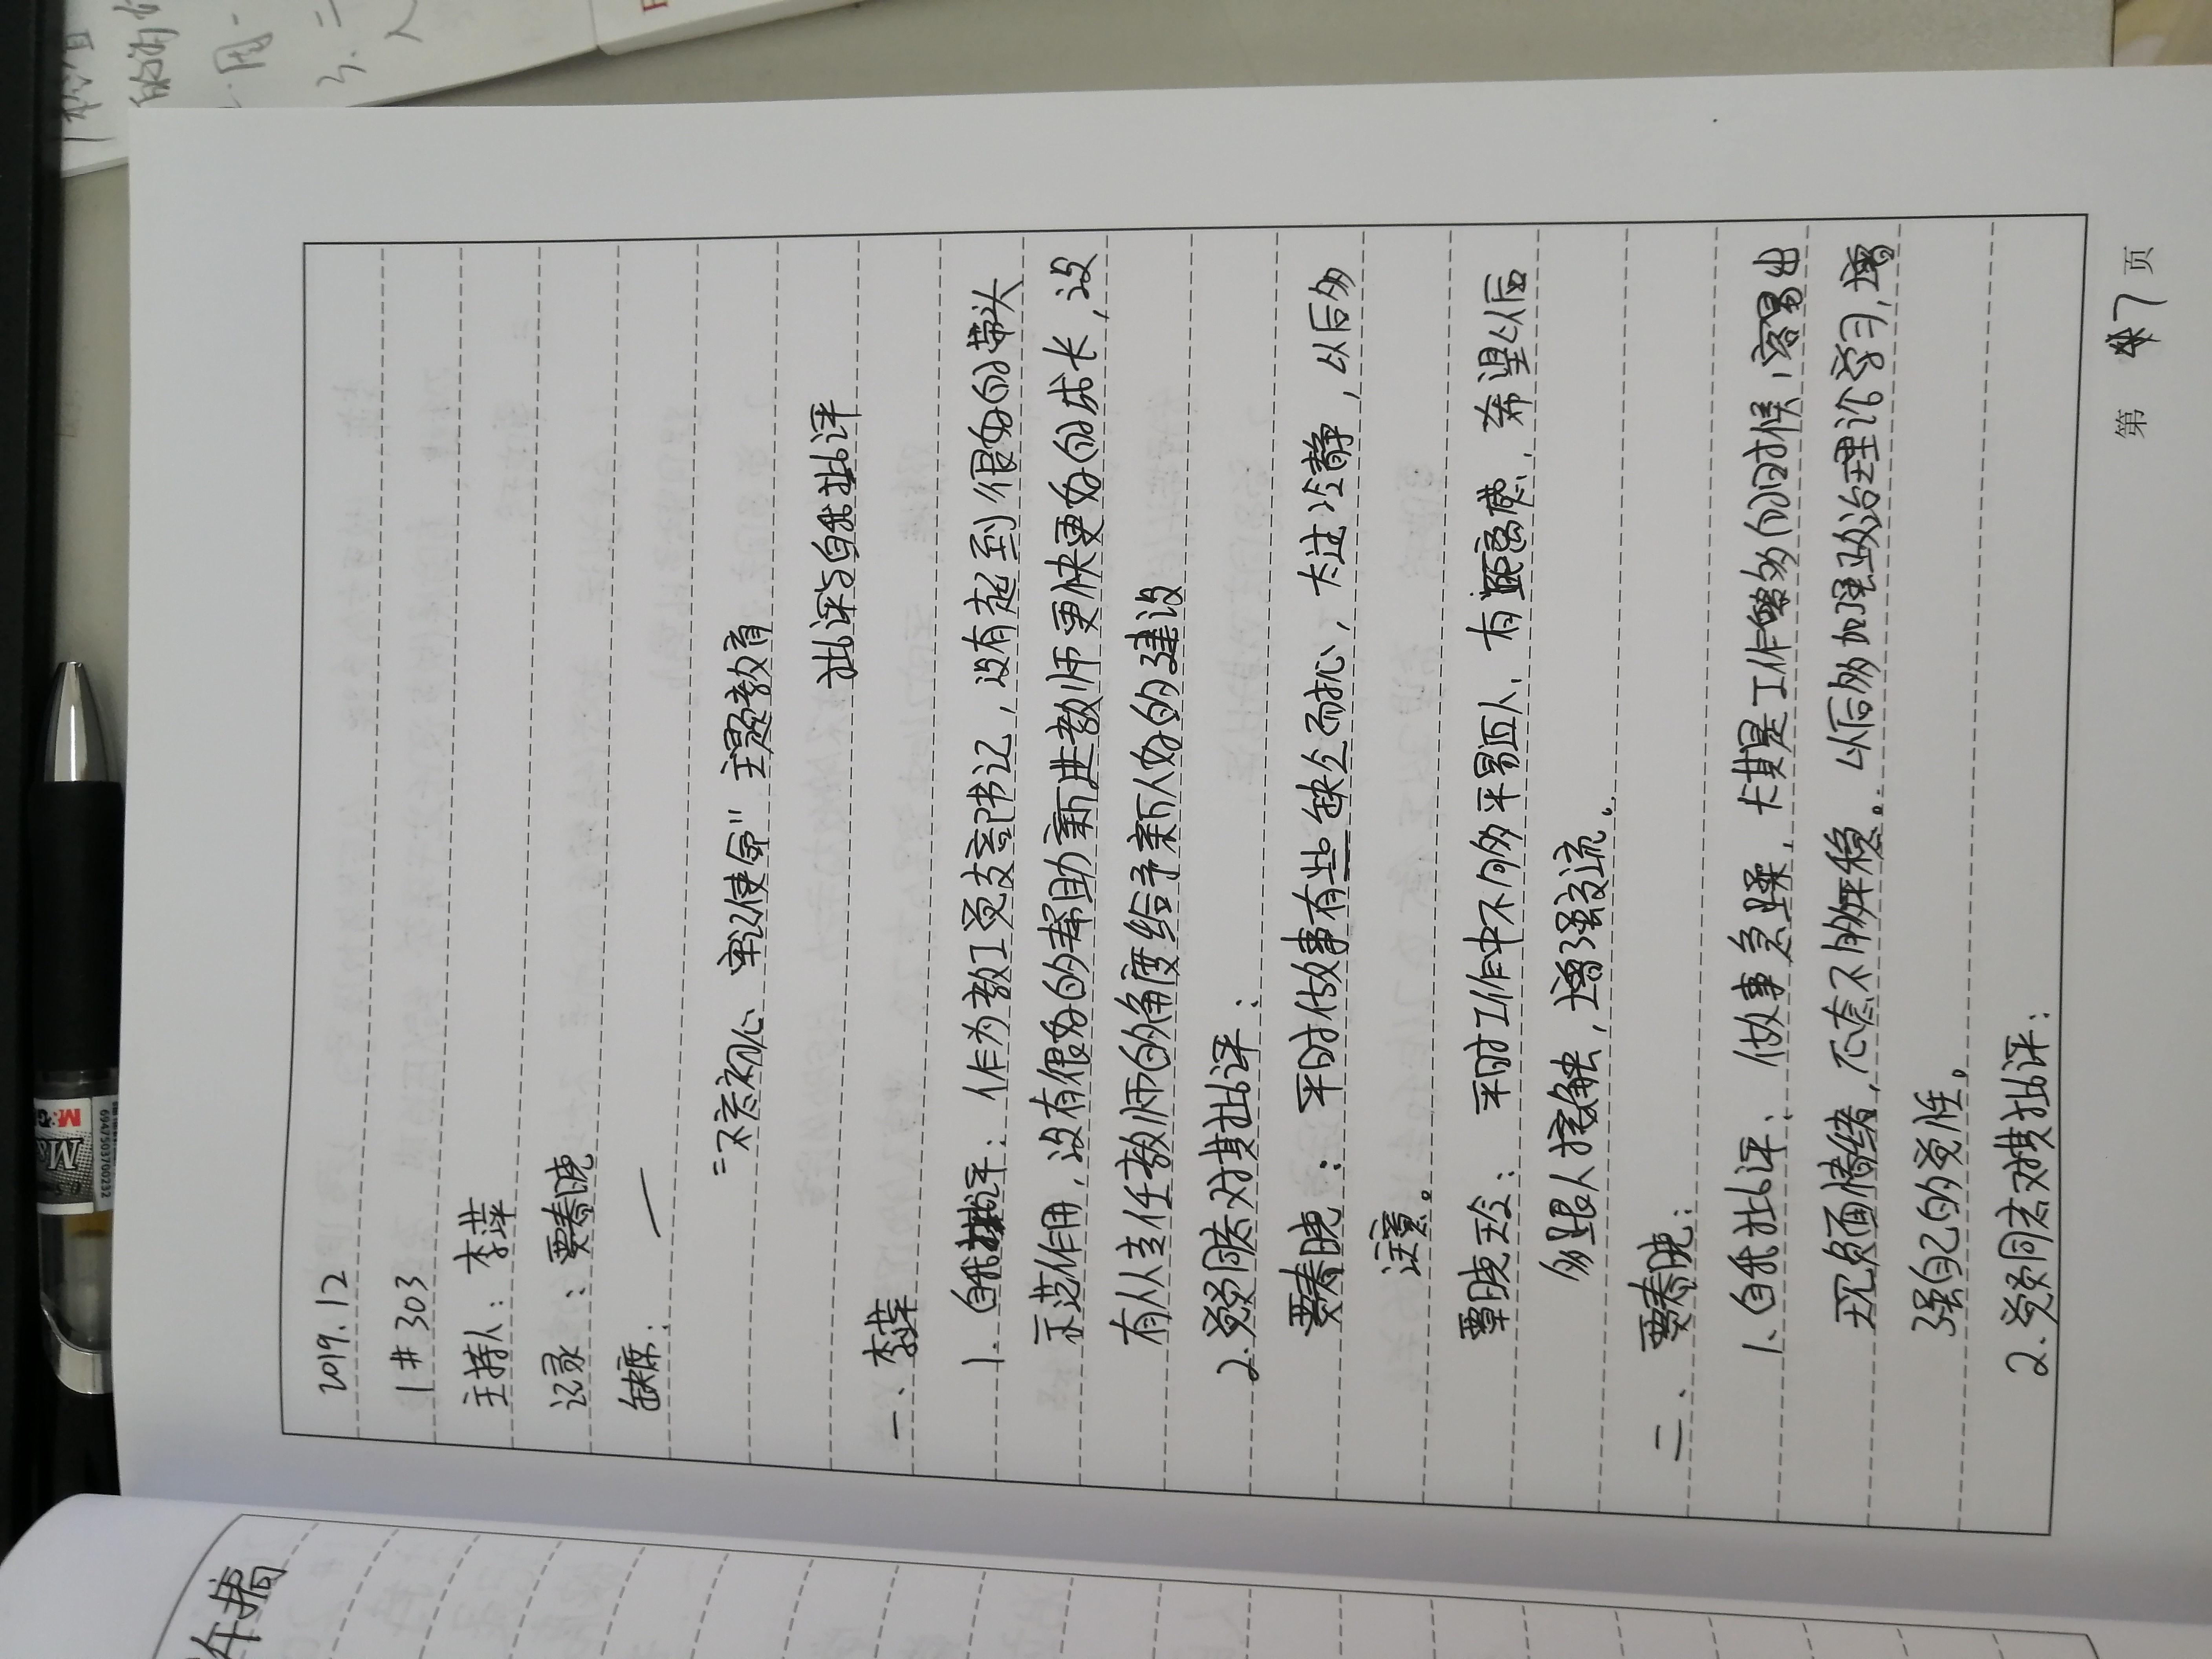 2019.12
1#303
主持人：李萍
记录：贾春晓
缺席：
"不忘初心 牢记使命"主题教育
批评与自我批评
一、李萍
1. 自我批评：作为教工党支部书记，没有起到很好的带头
示范作用，没有很好的帮助新进教师更快更好的成长，没
有从主任教师的角度给予新人好的建设
2. 党员同志对其批评：
贾春晓：平时做事有些缺乏耐心，欠注冷静，以后多
注意。
覃晓玲：平时工作中不够平易近人，有距离感，希望以后
多跟人接触，增强交流。
二、贾春晓：
1、自我批评：做事急躁，尤其是工作繁多的时候，容易出
现负面情绪，心态不够平稳。以后多加强政治理论学习，增
强自己的党性。
2. 党员同志对其批评：
第 7 页
M&G
6947503700232